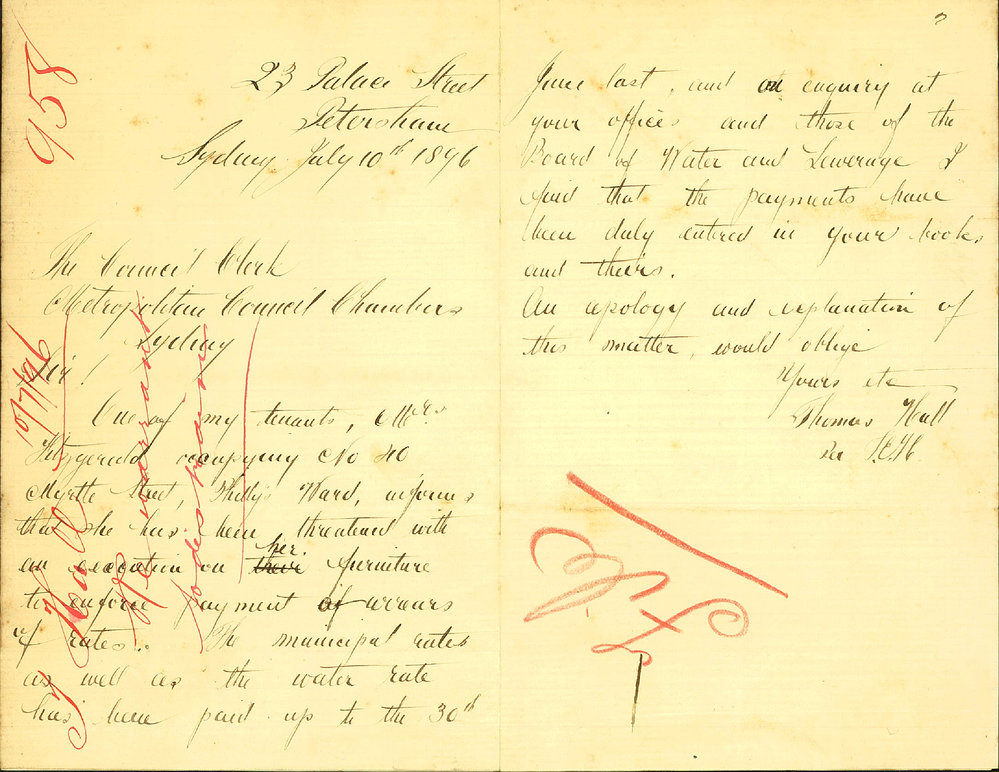 23 Palace Street
Petersham
Sydney July 10th 1896
The Council Clerk
Metropolitan Council Chambers
Sydney
Sir!
One of my tenants, Mrs.
Fitzgerald occupying No 40
Myrtle Street, Phillip Ward, informs
that she has been threatened with
an execution on their her. furniture
to enforce payment of arrears
of rates.. The municipal rates
as well as the water rate
has been paid up to the 30th
June last, and on enquiry at
your offices and those of the
Board of Water and Sewerage I
find that the payments have
been duly entered in your books
and theirs.
An apology and explanation of
this matter, would oblige
Yours etc
Thomas Hall
per
958
10/7/96
T Hall
Re warrant